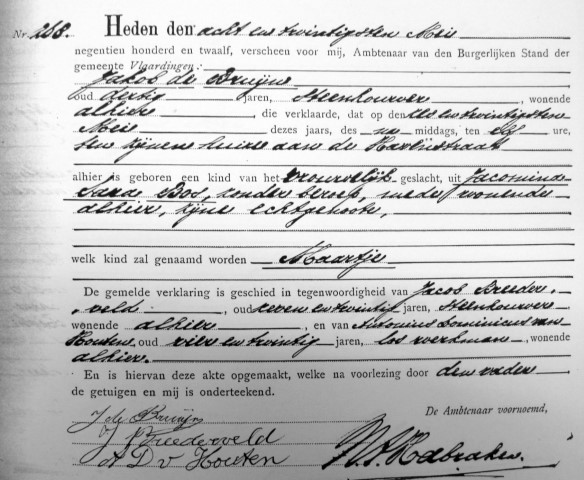 Nr. 268. Heden den acht en twintigsten Mei
negentien honderd en twaalf, verscheen voor mij, Ambtenaar van den Burgerlijken Stand der
gemeente Vlaardingen:
Jakob de Bruijn
oud dertig jaren, Steenhouwer, wonende
alhier, die verklaarde, dat op den en twintigsten
Mei dezes jaars, des na middags, ten elf ure,
ten zijnen huize aan de
alhier is geboren een kind van het vrouwelijk geslacht, uit Jacomina
Sara Bos, zonder beroep, mede wonende
alhier, zijne echtgenoote,
welk kind zal genaamd worden Maartje
De gemelde verklaring is geschied in tegenwoordigheid van Jacob Breeder-
veld, oud zeven en twintig jaren, Steenhouwer
wonende alhier, en van Antonius Dominicus van
Houten, oud vier en twintig jaren, los werkman, wonende
alhier.
En is hiervan deze akte opgemaakt, welke na voorlezing door den vader
de getuigen en mij is onderteekend.
De Ambtenaar voornoemd,
J de Bruijn
J Breederveld
A D v Houten